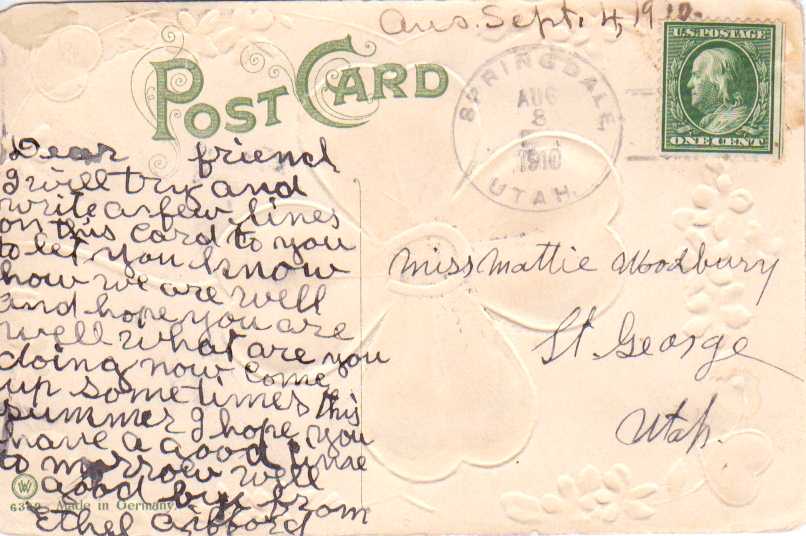 Ans. Sept. 4, 1910.
POST CARD
SPRINGDALE,
AUG
8
1910
UTAH.
U.S. POSTAGE
ONE CENT
Dear friend
I will try and
write a few lines
on this card to you
to let you know
how we are well
and hope you are
well what are you
doing now come
up sometimes this
summer I hope you
have a good time
to morrow well
good bye from
Ethel Gifford
Miss Mattie Woodbury
St. George
Utah.
W
Made in Germany.